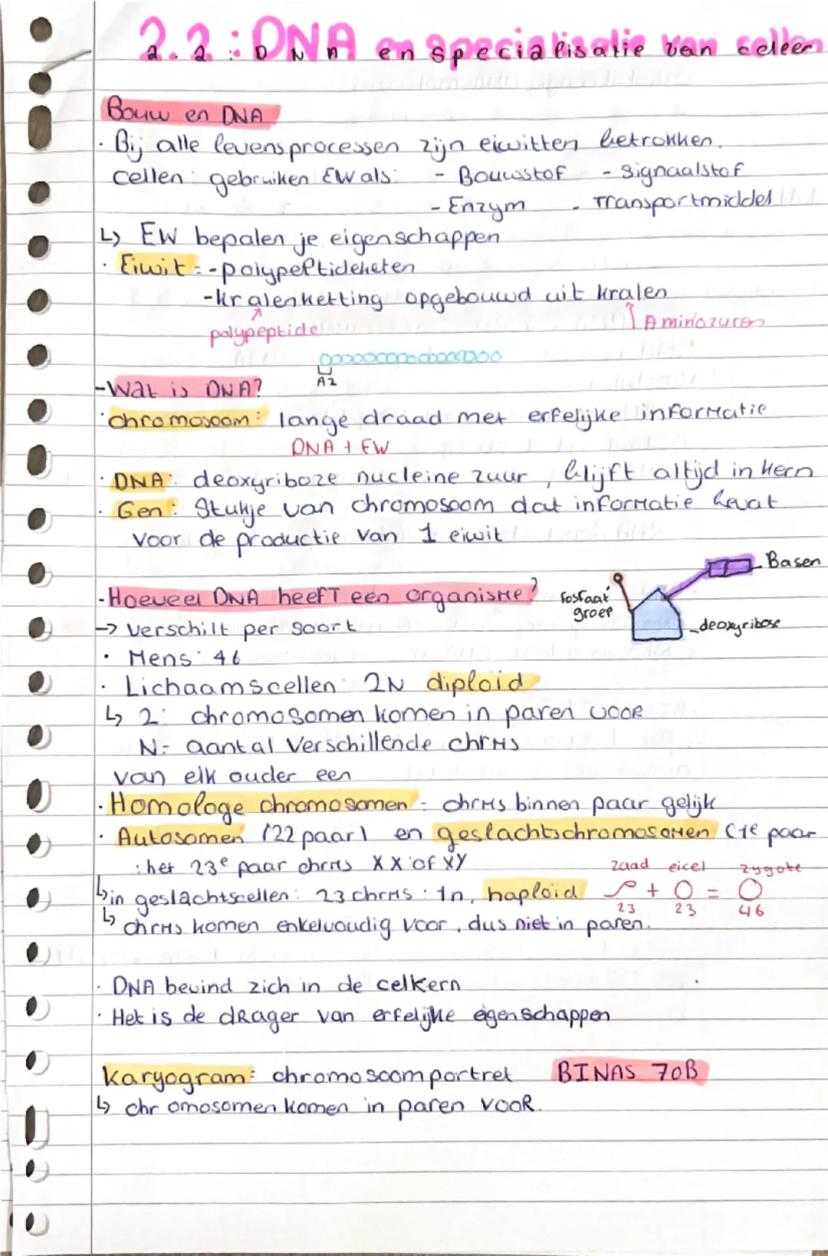 2.2: DNA en specialisatie van cellen
Bouw en DNA
· Bij alle levensprocessen zijn eiwitten betrokken.
cellen gebruiken EW als: - Bouwstof - Signaalstof
- Enzym - Transportmiddel
↳ EW bepalen je eigenschappen
· Eiwit: - polypeptideketen
- kralenketting opgebouwd uit kralen
polypeptide Aminozuren
AZ
- Wat is DNA?
· chromosoom: lange draad met erfelijke informatie
DNA + EW
· DNA: deoxyriboze nucleine zuur, blijft altijd in kern
· Gen: Stukje van chromosoom dat informatie bevat
voor de productie van 1 eiwit
Basen
- Hoeveel DNA heeft een organisme? fosfaat
groep
deoxyribose
→ verschilt per soort
· Mens: 46
· Lichaamscellen: 2N diploid
↳ 2: chromosomen komen in paren voor
N = aantal verschillende chrms
van elk ouder een
· Homologe chromosomen = chrms binnen paar gelijk
· Autosomen (22 paar) en geslachtschromosomen (1e paar
: het 23e paar chrms XX of XY
zaad eicel zygote
↳ in geslachtscellen: 23 chrms: 1n, haploid + =
23 23 46
↳ chrms komen enkelvoudig voor, dus niet in paren.
· DNA bevind zich in de celkern
· Het is de drager van erfelijke eigenschappen
Karyogram: chromosoomportret BINAS 70B
↳ chromosomen komen in paren voor.